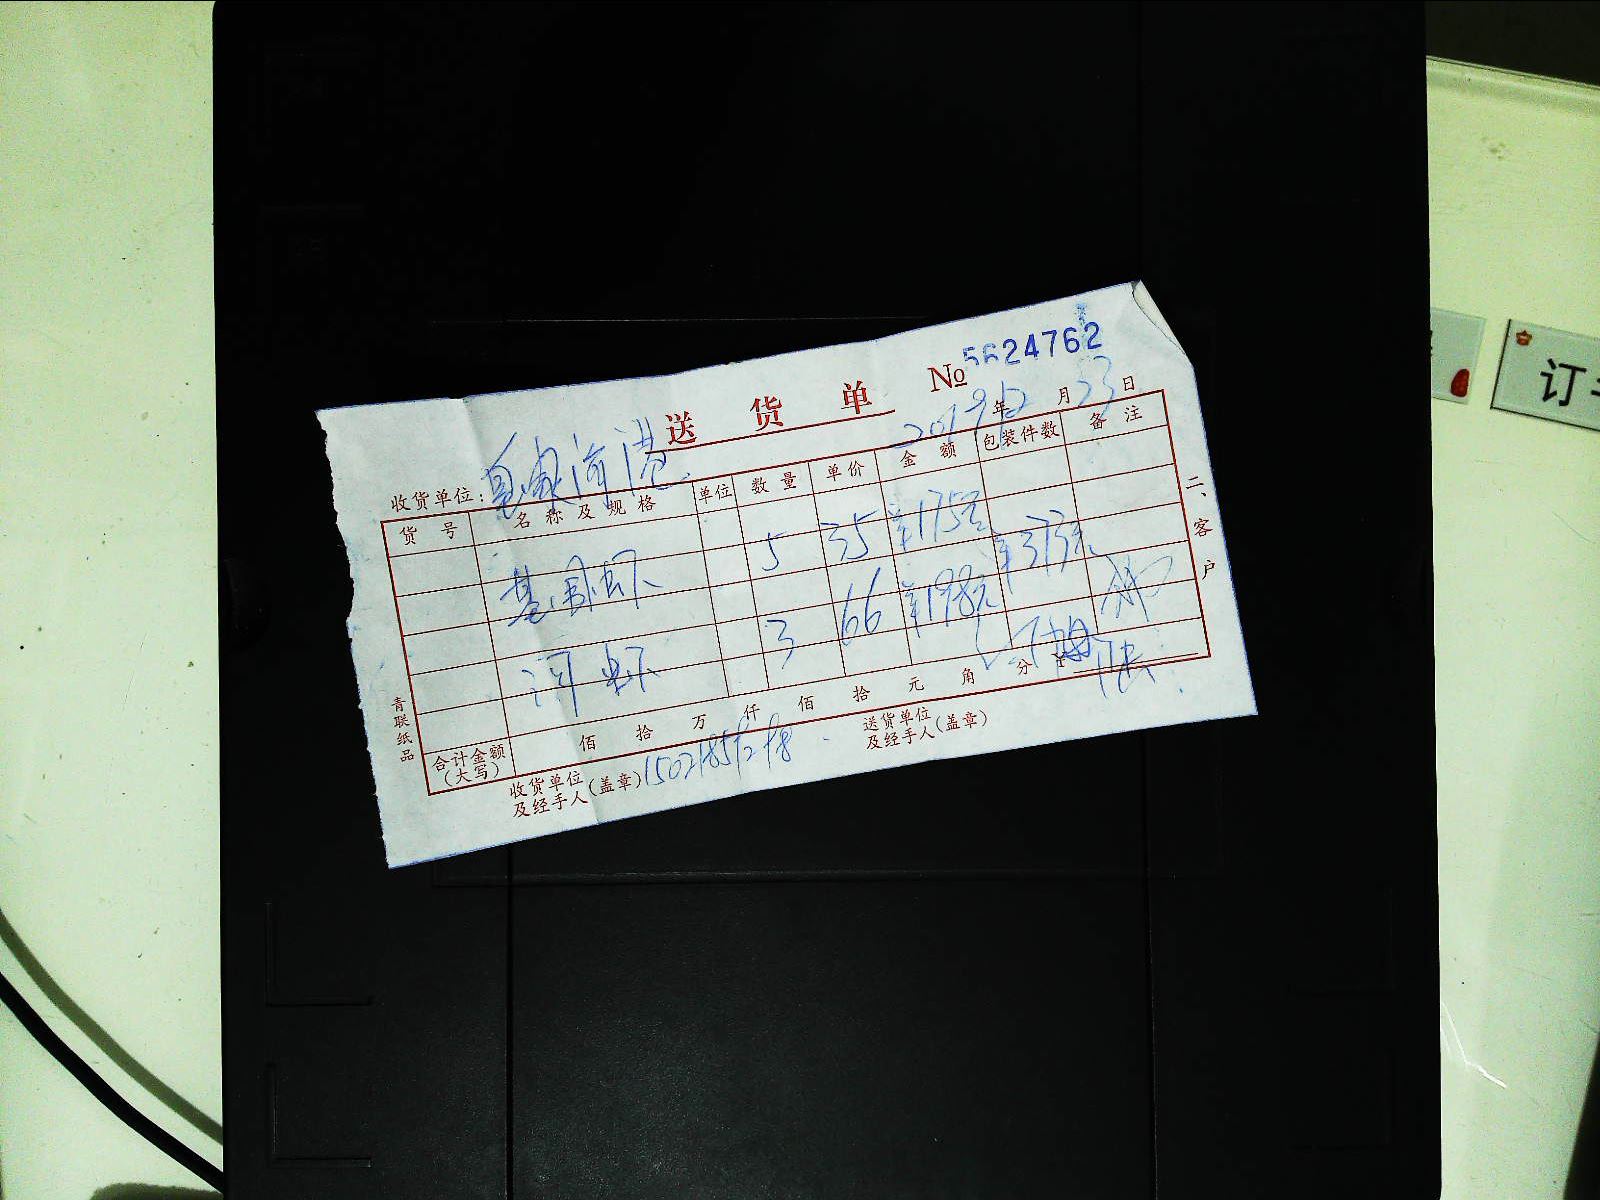 送货单 № 5624762
2019年12月23日
收货单位:
货号 名称及规格 单位 数量 单价 金额 包装件数 备注
基围虾 5 35 ¥175元
¥373元
河虾 3 66 ¥198元
合计金额(大写) 佰 拾 万 仟 佰 拾 元 角 分 ¥
收货单位及经手人(盖章)
送货单位及经手人(盖章)
二、客户
青联纸品
订